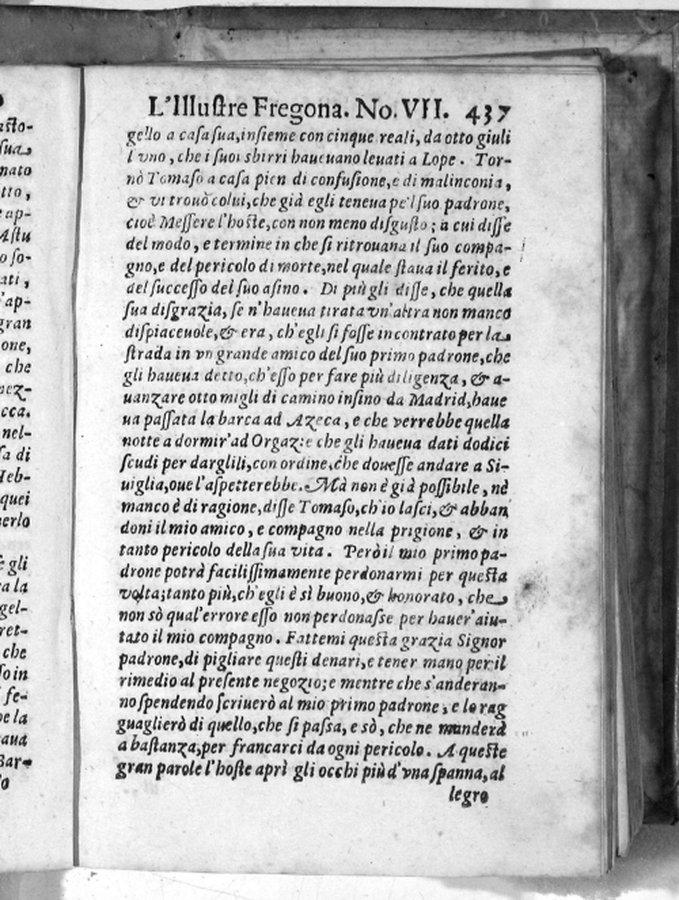 L'Illustre Fregona. No. VII. 437
gello a casa sua, insieme con cinque reali, da otto giuli
l'vno, che i suoi sbirri haueuano leuati a Lope. Tor-
nò Tomaso a casa pien di confusione, e di malinconia,
& vi trouò colui, che già egli teneua pe'l suo padrone,
cioè Messere l'hoste, con non meno disgusto; a cui disse
del modo, e termine in che si ritrouaua il suo compa-
gno, e del pericolo di morte, nel quale staua il ferito, e
del successo del suo asino. Di più gli disse, che quella
sua disgrazia, se n'haueua tirata vn'altra non manco
dispiaceuole, & era, ch'egli si fosse incontrato per la
strada in vn grande amico del suo primo padrone, che
gli haueua detto, ch'esso per fare più diligenza, & a-
uanzare otto migli di camino insino da Madrid, haue
ua passata la barca ad Azeca, e che verrebbe quella
notte a dormir'ad Orgaz: e che gli haueua dati dodici
scudi per darglili, con ordine, che douesse andare a Si-
uiglia, oue l'aspetterebbe. Mà non è già possibile, nè
manco è di ragione, disse Tomaso, ch'io lasci, & abban
doni il mio amico, e compagno nella prigione, & in
tanto pericolo della sua vita. Però il mio primo pa-
drone potrà facilissimamente perdonarmi per questa
volta; tanto più, ch'egli è sì buono, & honorato, che
non sò qual'errore esso non perdonasse per hauer'aiu-
tato il mio compagno. Fattemi questa grazia Signor
padrone, di pigliare questi denari, e tener mano per il
rimedio al presente negozio; e mentre che s'anderan-
no spendendo scriuerò al mio primo padrone, e lo rag
guaglierò di quello, che si passa, e sò, che ne manderà
a bastanza, per francarci da ogni pericolo. A queste
gran parole l'hoste aprì gli occhi più d'vna spanna, al
legro